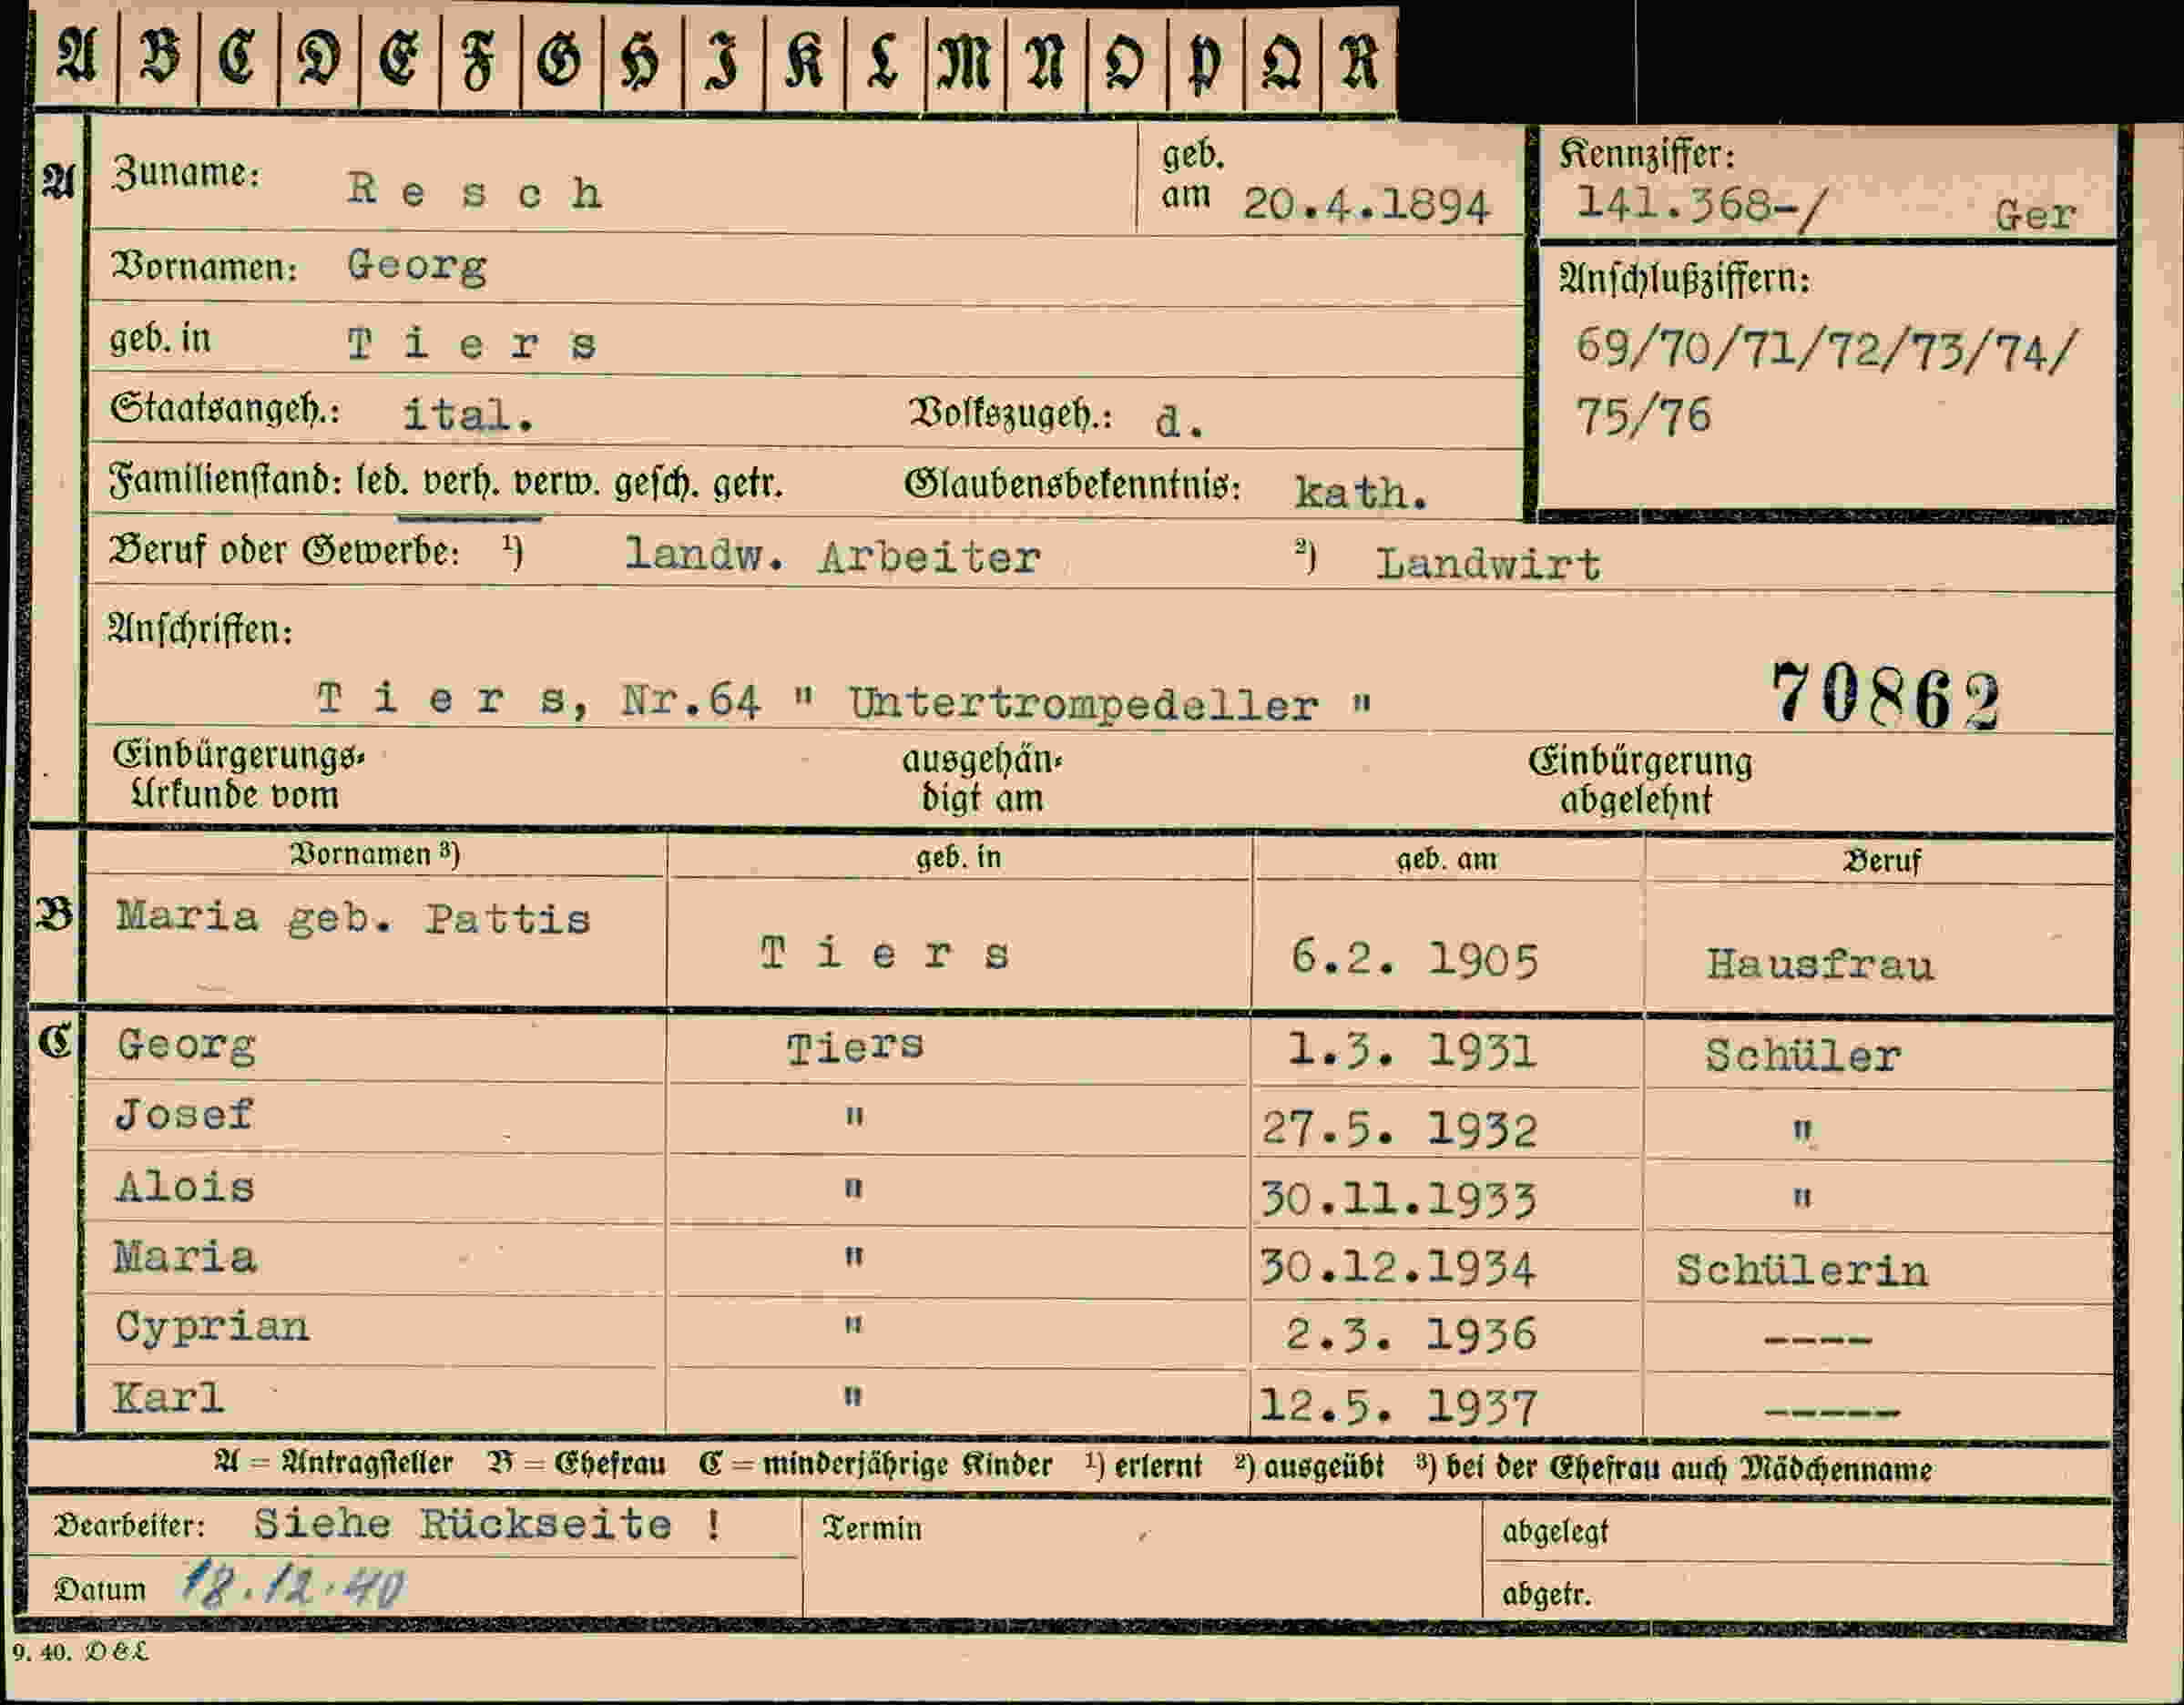 A B C D E F G H I K L M N O P Q R
A Zuname: Resch geb. am 20.4.1894 Kennziffer: 141.368-/ Ger
Vornamen: Georg Anschlußziffern:
geb. in Tiers 69/70/71/72/73/74/
Staatsangeh.: ital. Volkszugeh.: d. 75/76
Familienstand: led. verh. verw. gesch. getr. Glaubensbekenntnis: kath.
Beruf oder Gewerbe: ¹) landw. Arbeiter ²) Landwirt
Anschriften:
Tiers, Nr.64 " Untertrompedeller " 70862
Einbürgerungs- ausgehän- Einbürgerung
Urkunde vom digt am abgelehnt
Vornamen ³) geb. in geb. am Beruf
B Maria geb. Pattis Tiers 6.2. 1905 Hausfrau
C Georg Tiers 1.3. 1931 Schüler
Josef " 27.5. 1932 "
Alois " 30.11.1933 "
Maria " 30.12.1934 Schülerin
Cyprian " 2.3. 1936 ----
Karl " 12.5. 1937 -----
A = Antragsteller B = Ehefrau C = minderjährige Kinder ¹) erlernt ²) ausgeübt ³) bei der Ehefrau auch Mädchenname
Bearbeiter: Siehe Rückseite ! Termin abgelegt
Datum 18.12.40 abgetr.
9. 40. D & L